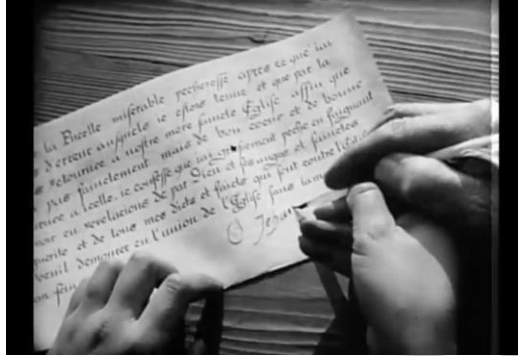 la Pucelle miserable pecheresse apres ce que iai
d'erreur ausquels ie estois tenue et que par la
retournee a nostre mere saincte Eglise affin que
pas fainctement mais de bon coeur et de bonne
a icelle, ie confesse que iai griefvement peche en faignant
avoir eu revelacions de par Dieu et ses anges et sainctes
et de tous mes dicts et faicts qui sont contre l'Eglise
veuil demourer en l'union de l'Eglise sans
Jehan